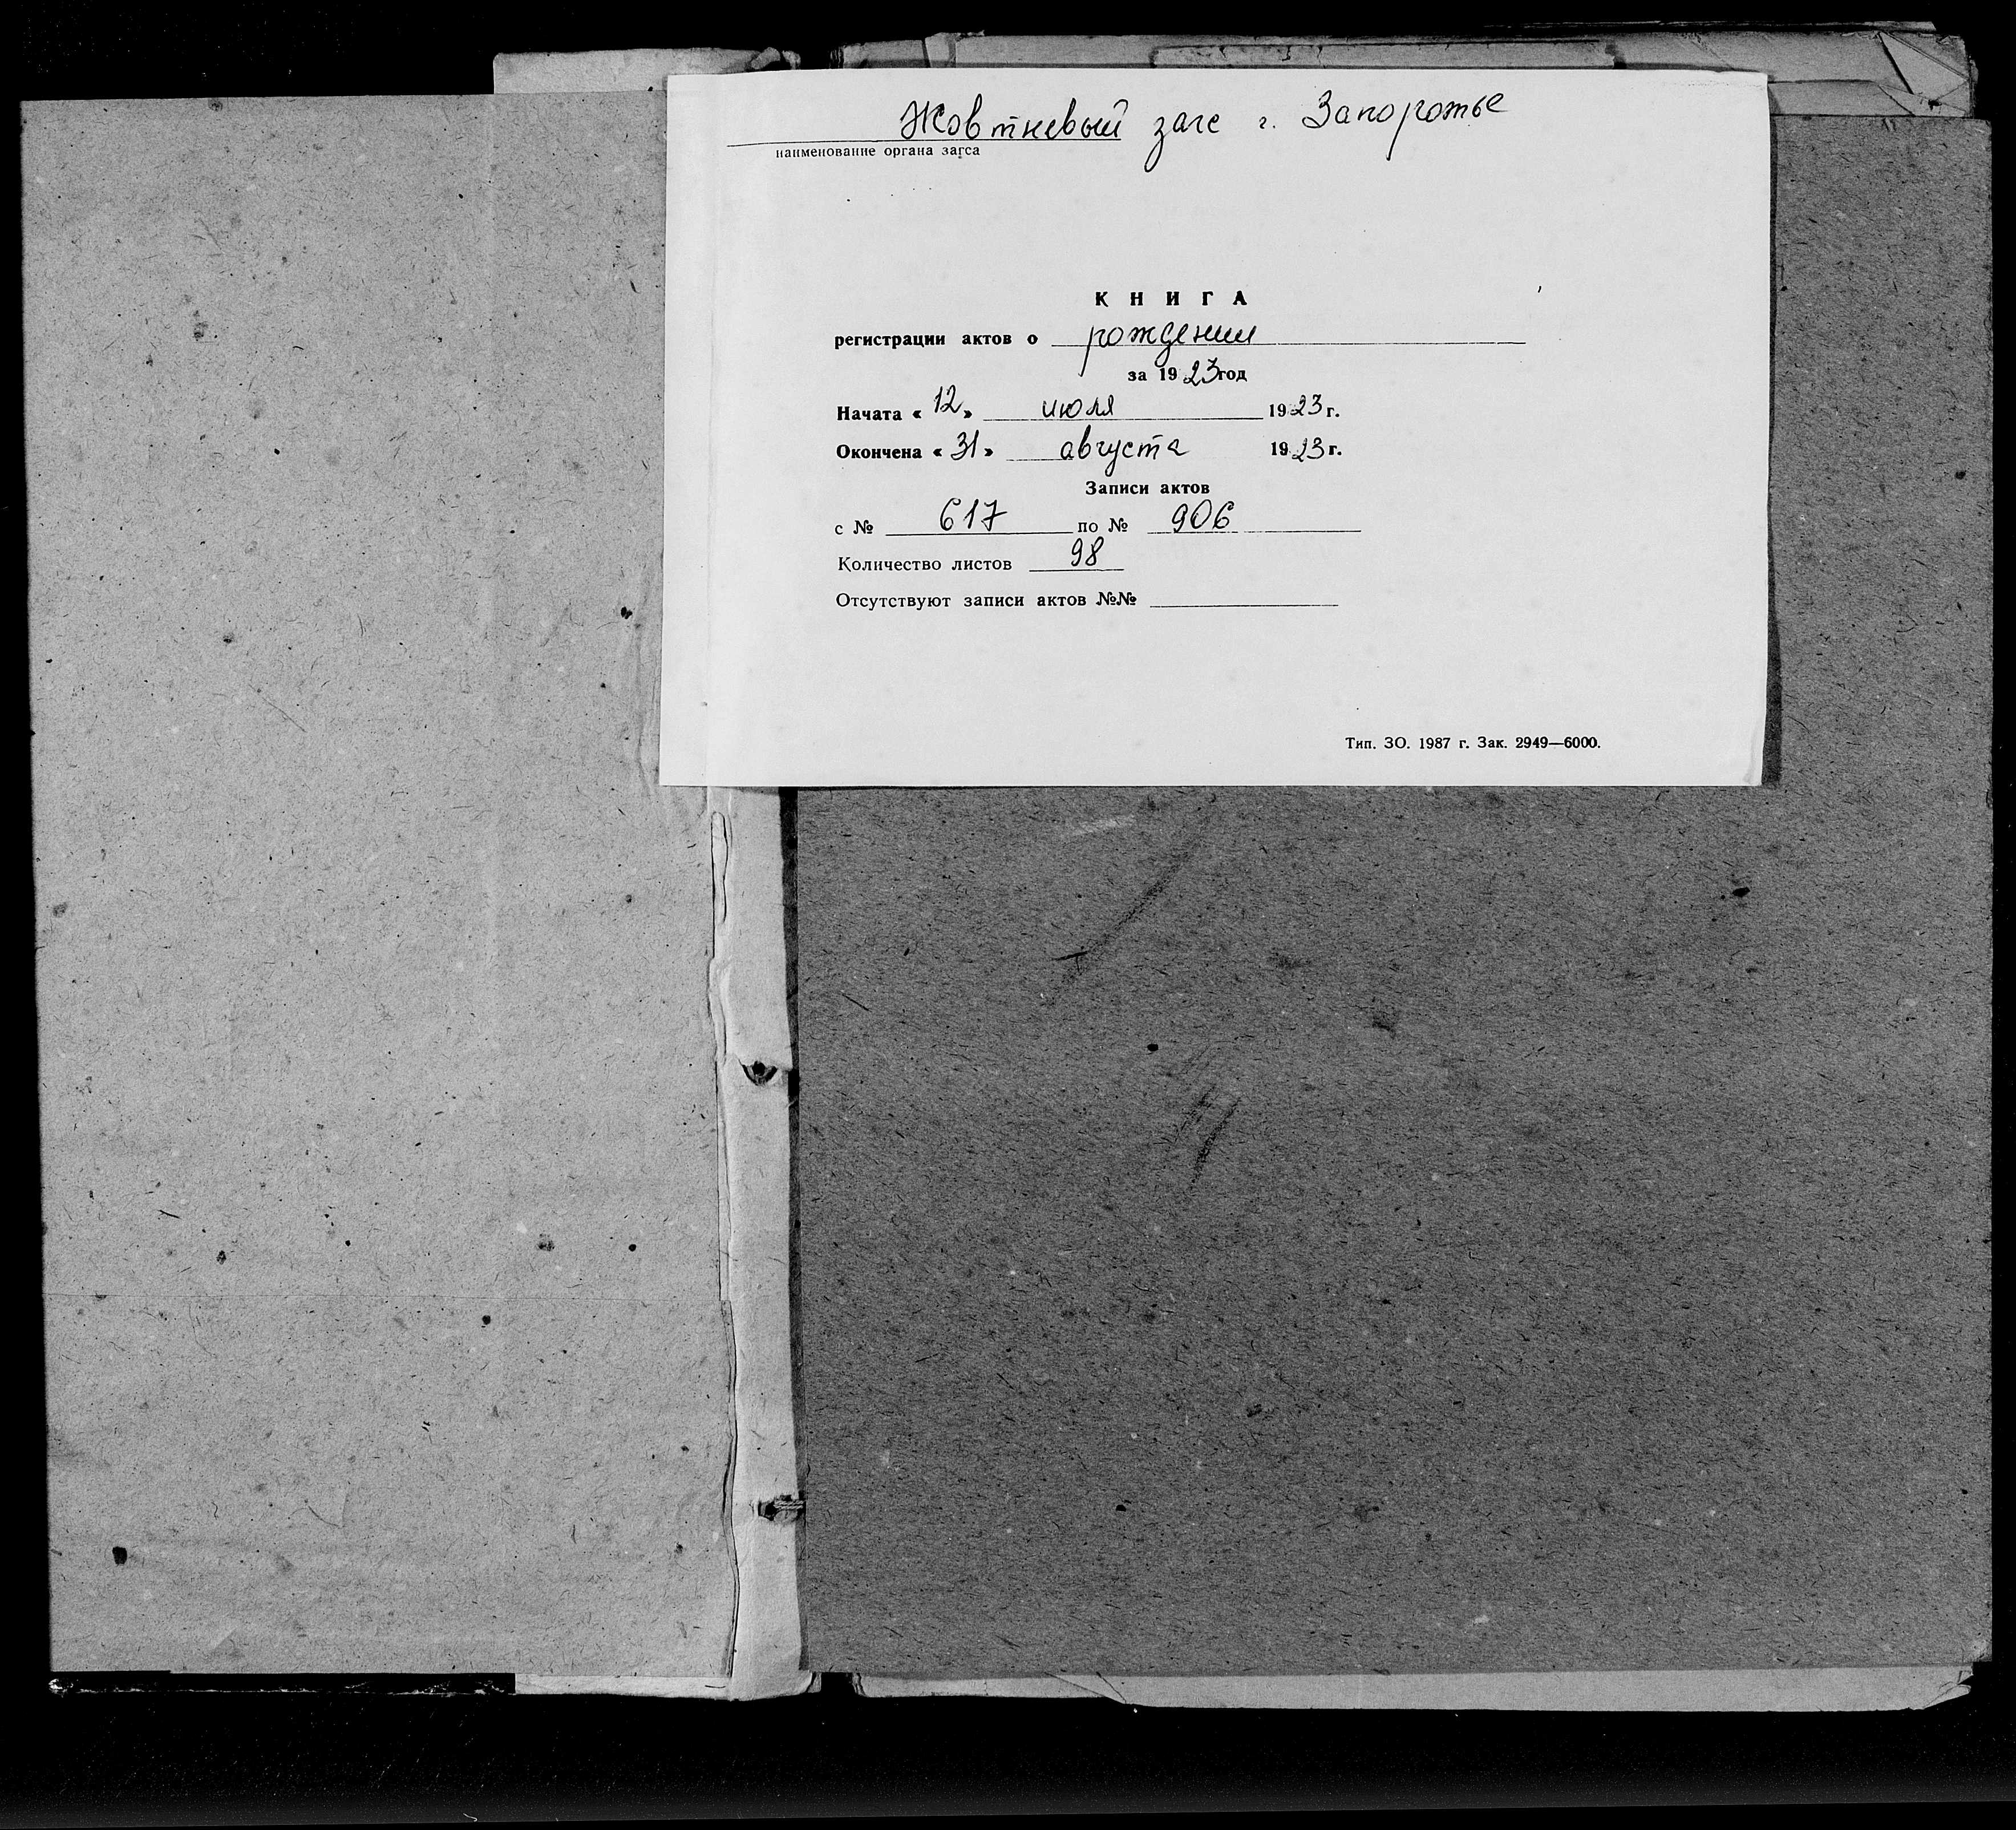 Жовтневый загс г. Запорожье
наименование органа загса
КНИГА
регистрации актов о рождении
за 1923 год
Начата «12» июля 1923 г.
Окончена «31» августа 1923 г.
Записи актов
с № 617 по № 906
Количество листов 98
Отсутствуют записи актов №№
Тип. ЗО. 1987 г. Зак. 2949—6000.